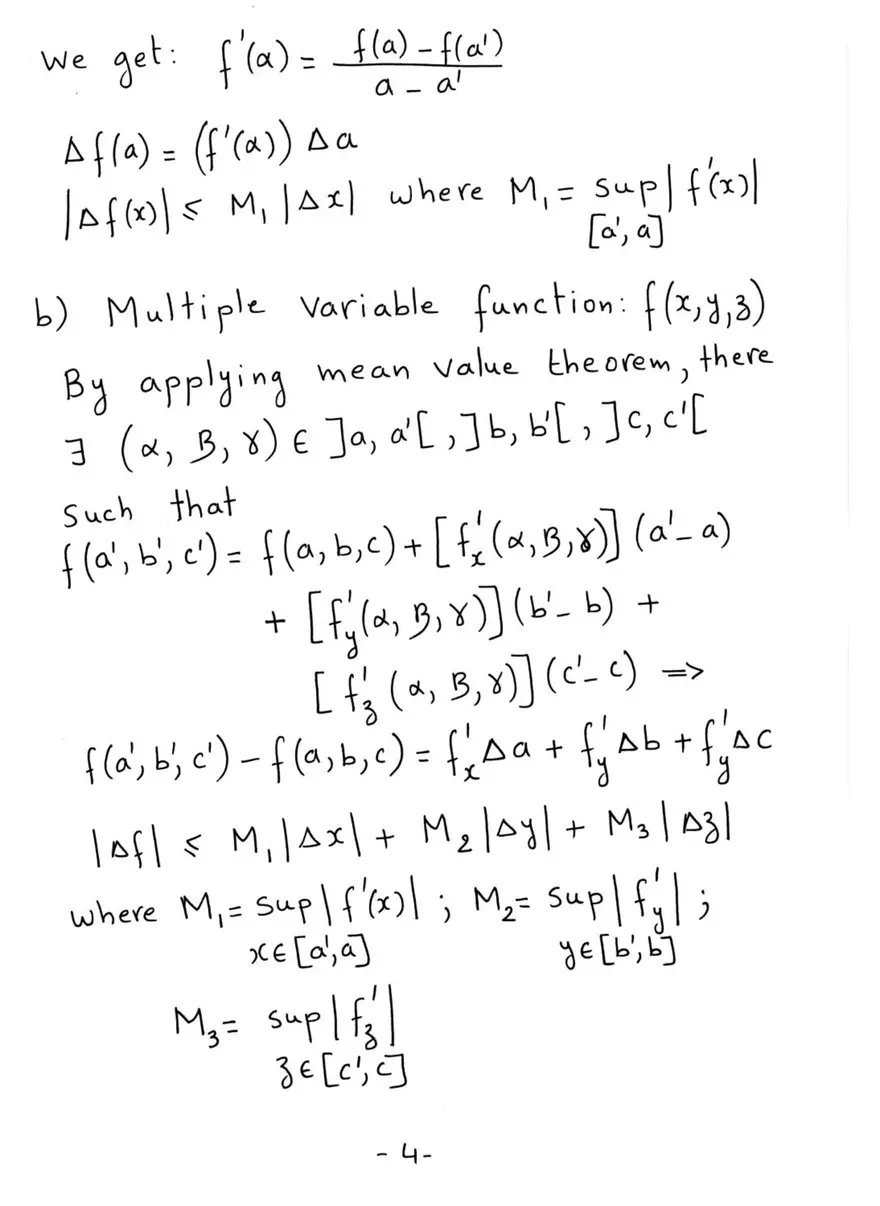 We get: f'(α) = f(a) – f(a') / a – a'
Δf(a) = (f'(α)) Δa
|Δf(x)| ≤ M₁ |Δx| where M₁ = sup |f'(x)|
[a', a]
b) Multiple variable function: f(x,y,z)
By applying mean value theorem, there
∃ (α, β, γ) ∈ ]a, a'[ , ]b, b'[ , ]c, c'[
such that
f(a', b', c') = f(a,b,c) + [f'ₓ(α,β,γ)] (a' – a)
+ [f'y(α, β, γ)] (b' – b) +
[f'z (α, β, γ)] (c' – c) =>
f(a', b', c') – f(a,b,c) = f'ₓ Δa + f'y Δb + f'y Δc
|Δf| ≤ M₁|Δx| + M₂|Δy| + M₃|Δz|
where M₁ = sup |f'(x)| ; M₂ = sup |f'y| ;
x∈[a',a] y∈[b',b]
M₃ = sup |f'z|
z∈[c',c]
- 4 -